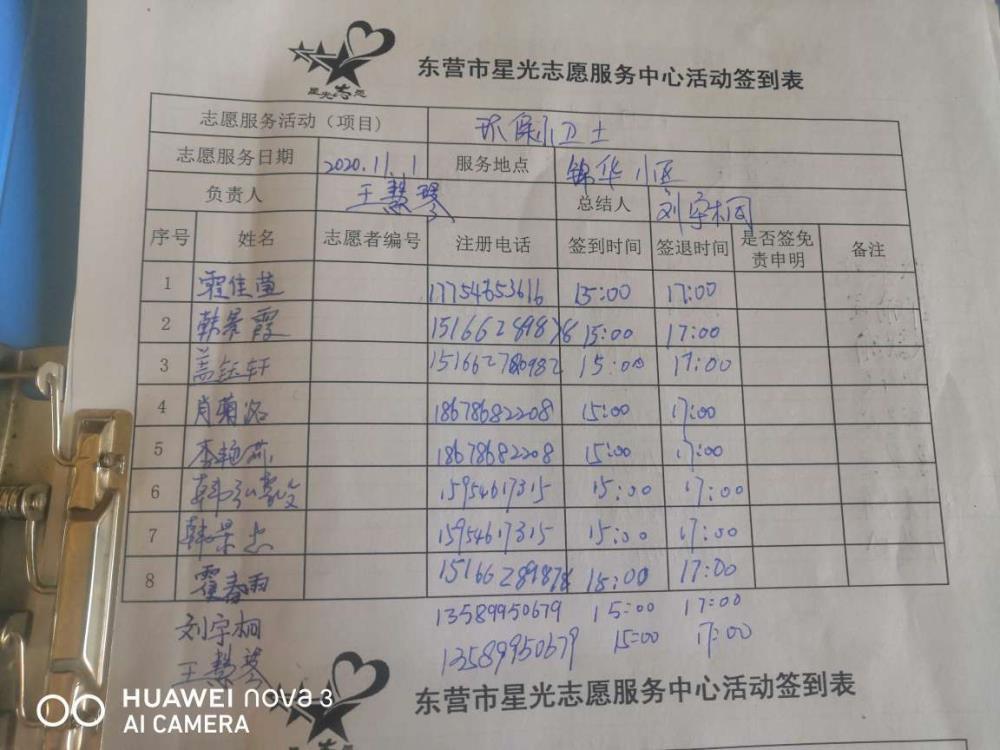 星光志愿
东营市星光志愿服务中心活动签到表
志愿服务活动（项目) 环保小卫士
志愿服务日期 2020.11.1 服务地点 锦华小区
负责人 王慧琴 总结人 刘宇桐
序号 姓名 志愿者编号 注册电话 签到时间 签退时间 是否签免责申明 备注
1 霍佳莹 17754653616 15:00 17:00
2 韩景霞 15:00 17:00
3 盖钰轩 15:00 17:00
4 肖菊洺 18678682208 15:00 17:00
5 李艳燕 18678682208 15:00 17:00
6 15954617315 15:00 17:00
7 韩景忠 15954617315 15:00 17:00
8 霍春雨 15:00 17:00
刘宇桐 13589950679 15:00 17:00
王慧琴 13589950679 15:00 17:00
东营市星光志愿服务中心活动签到表
HUAWEI nova 3
AI CAMERA